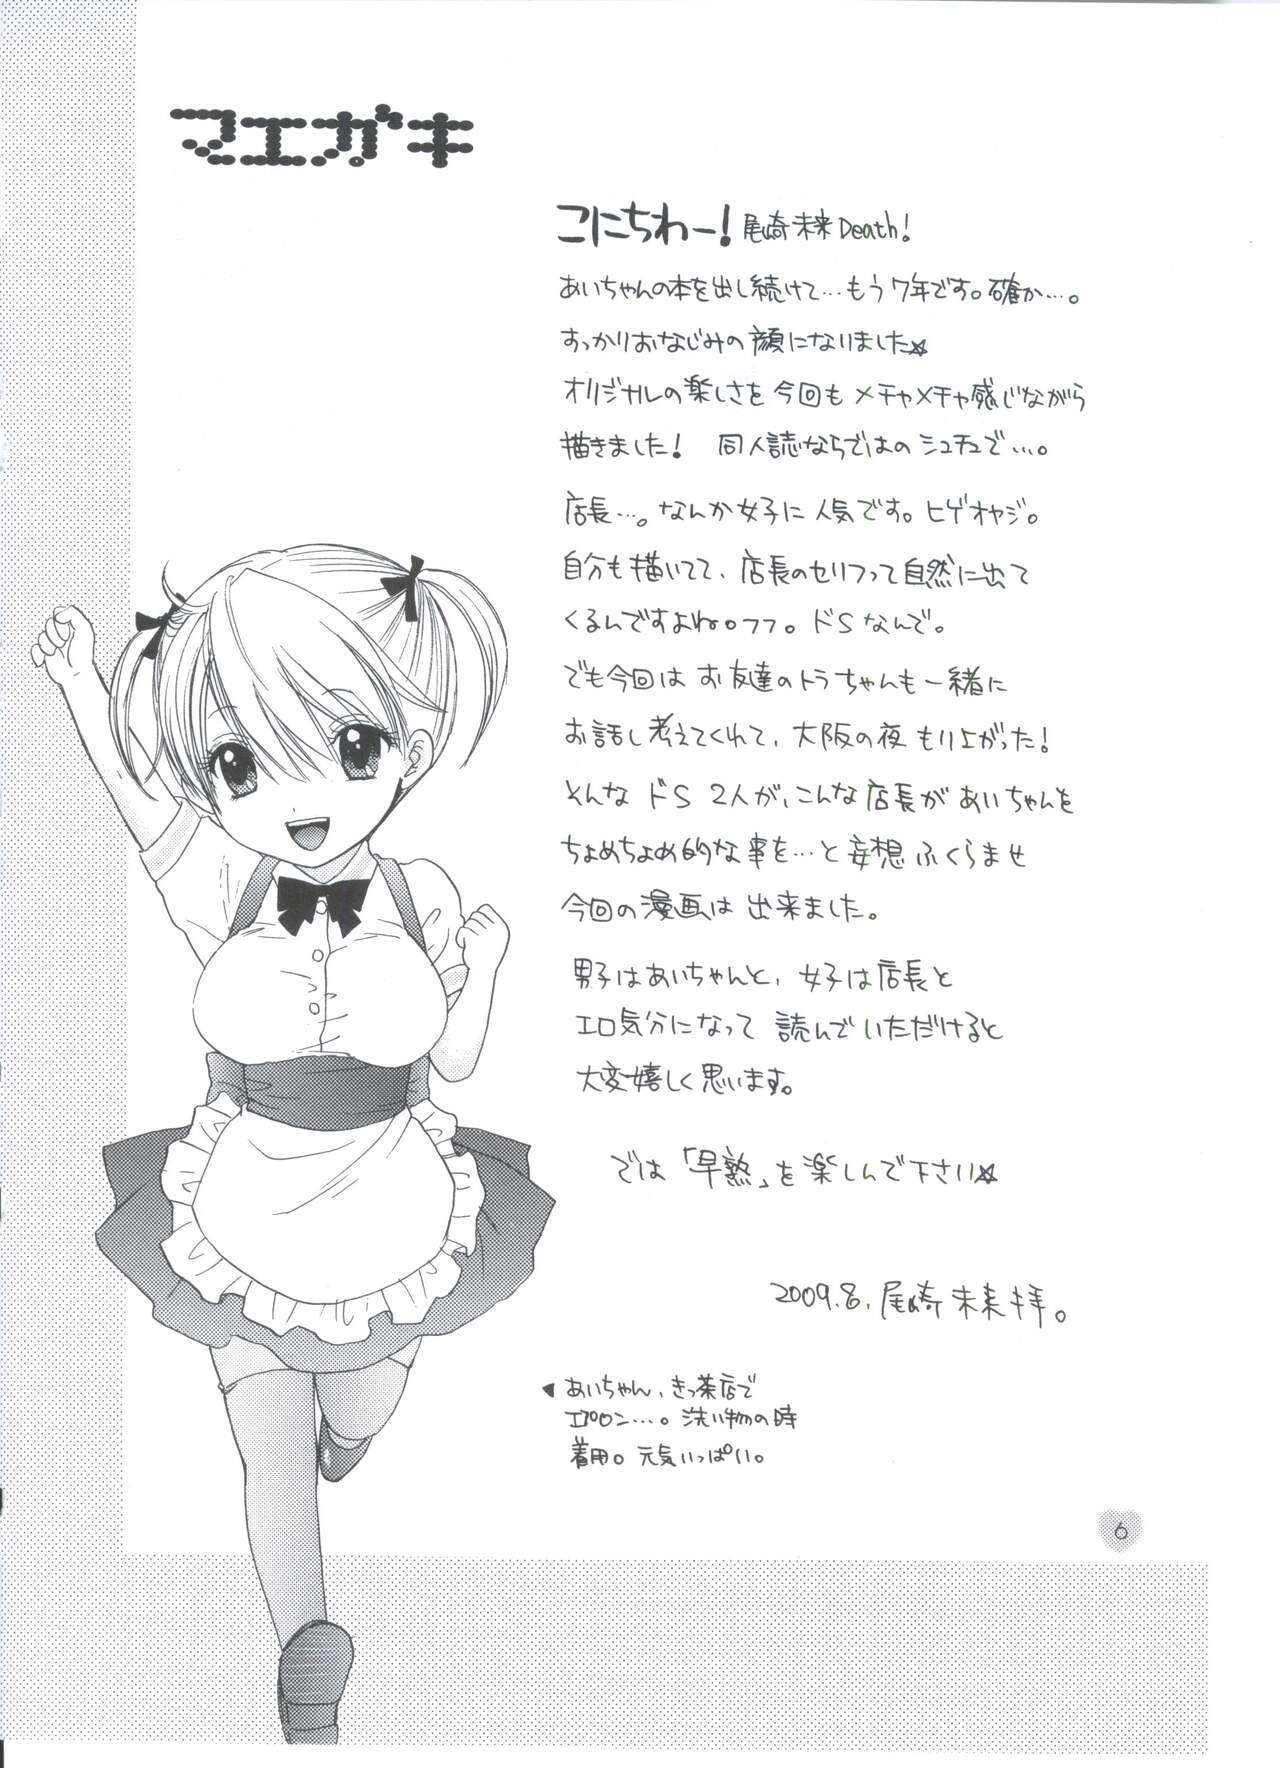 マエガキ
こにちわー! 尾崎未来Death!
あいちゃんの本を出し続けて…もう7年です。確か…。
すっかりおなじみの顔になりました☆
オリジナルの楽しさを今回もメチャメチャ感じながら
描きました! 同人誌ならではのシュチュで…。
店長…。なんか女子に人気です。ヒゲオヤジ。
自分も描いてて、店長のセリフって自然に出て
くるんですよね。フフ。ドSなんで。
でも今回はお友達のトラちゃんも一緒に
お話し考えてくれて、大阪の夜もり上がった!
そんなドS2人が、こんな店長があいちゃんを
ちょめちょめ的な事を…と妄想ふくらませ
今回の漫画は出来ました。
男子はあいちゃんと、女子は店長と
エロ気分になって読んでいただけると
大変嬉しく思います。
では「早熟」を楽しんで下さい☆
2009.8.尾崎未来拝。
◀あいちゃん、きっ茶店で
エプロン…。洗い物の時
着用。元気いっぱい。
6